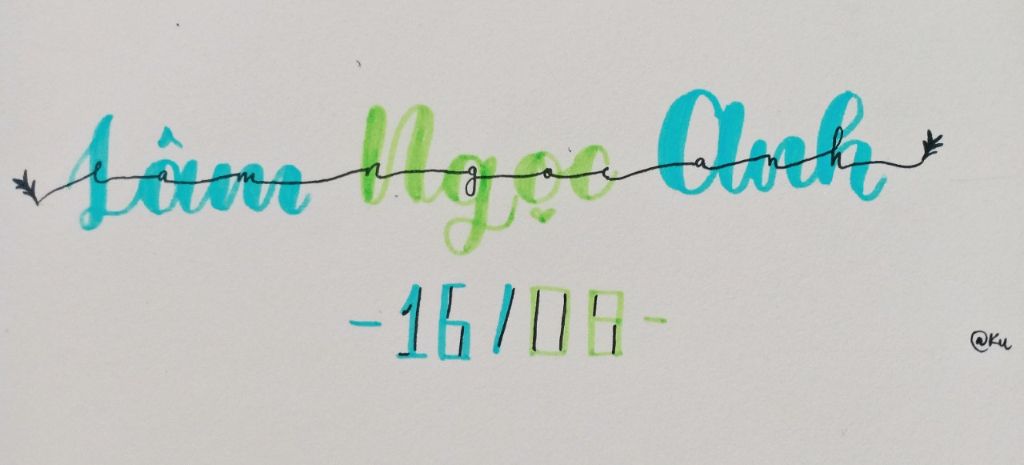 Lâm Ngọc Anh
lam ngoc anh
- 16/08 -
@Ku